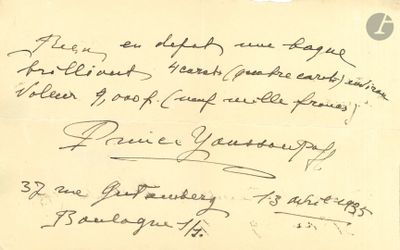 Reçu en depot une bague
brilliant 4 carats (quatre carats) environ
Valeur 9,000 f. (neuf mille francs)
Prince Youssoupoff
37 rue Gutenberg 13 avril 1935
Boulogne s/S.